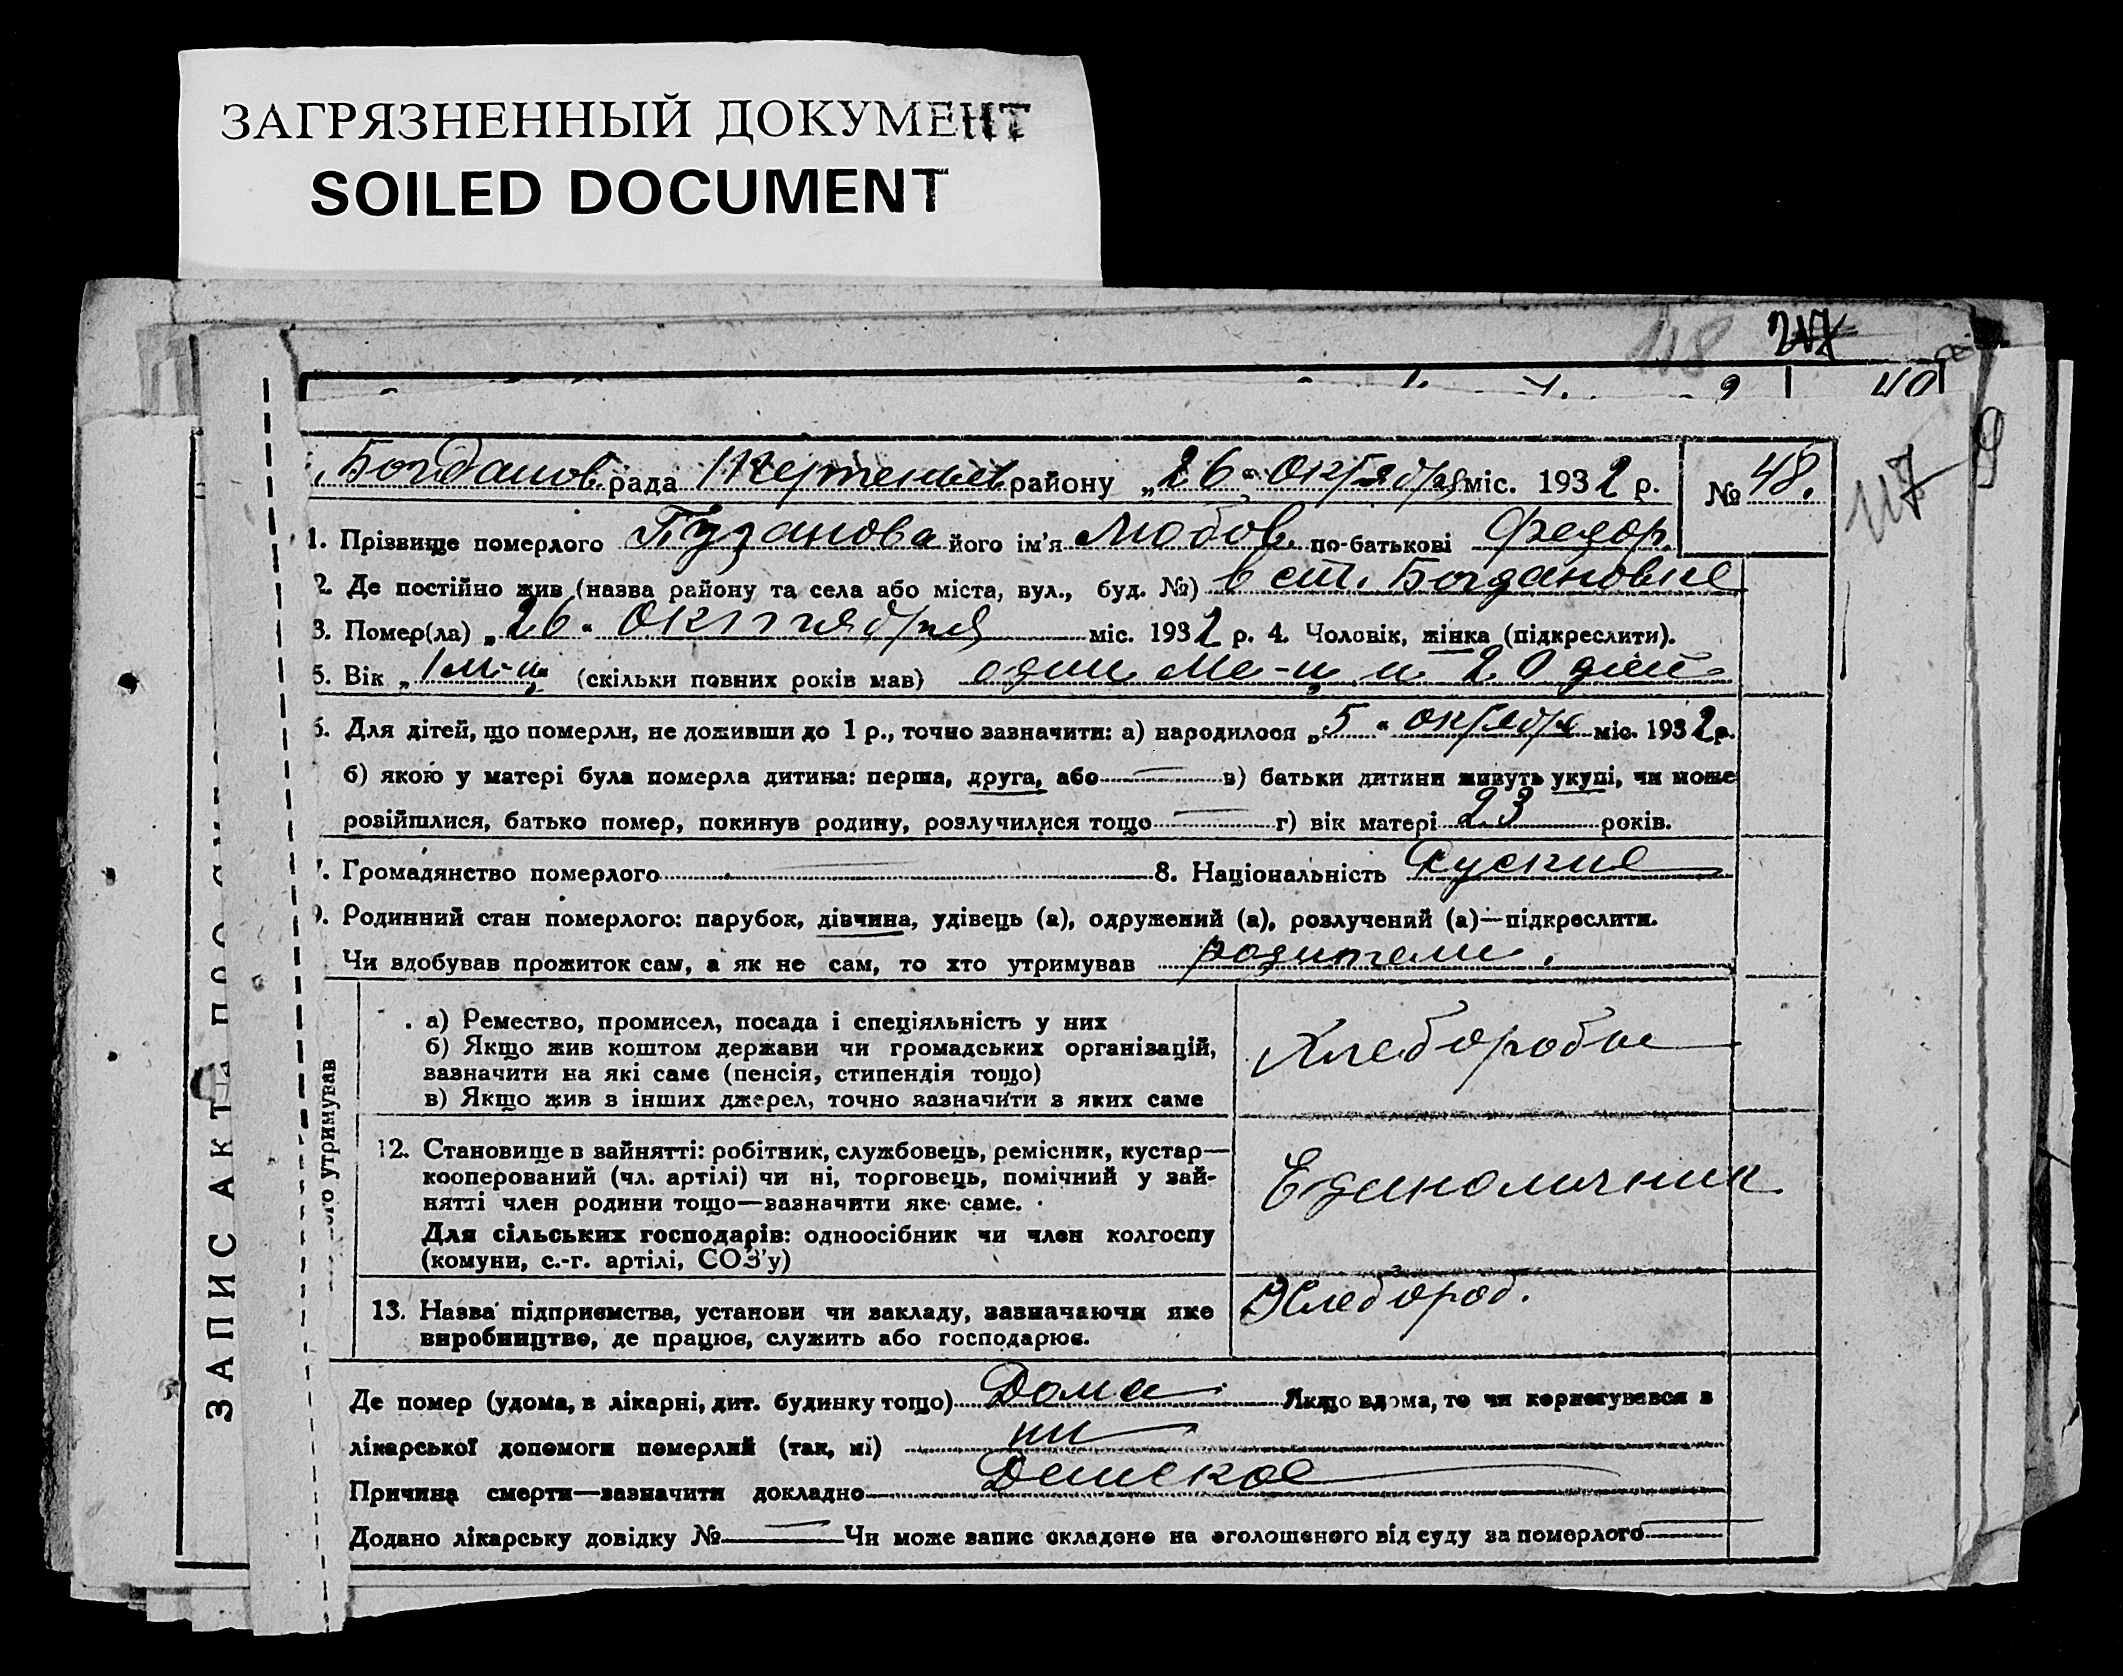 ЗАГРЯЗНЕННЫЙ ДОКУМЕНТ
SOILED DOCUMENT
118 217
40
117
Богданов рада района „26“ октября міс. 1932 р. № 48.
1. Прізвище померлого Пузанова його ім'я Любов по-батькові Федор.
2. Де постійно жив (назва району та села або міста, вул., буд. №) в ст. Богдановке
3. Помер(ла) „26“ октября міс. 1932 р. 4. Чоловік, жінка (підкреслити).
5. Вік „1 м-ц (скільки повних років мав) один ме-ц и 20 дней
6. Для дітей, що померли, не доживши до 1 р., точно зазначити: а) народилося „5“ октября міс. 1932 р.
б) якою у матері була померла дитина: перша, друга, або в) батьки дитини живуть укупі, чи може
розійшлися, батько помер, покинув родину, розлучилися тощо г) вік матері 23 років.
7. Громадянство померлого 8. Національність Руские
9. Родинний стан померлого: парубок, дівчина, удівець (а), одружений (а), розлучений (а)—підкреслити.
Чи здобував прожиток сам, а як не сам, то хто утримував родители.
ого утримував
а) Ремество, промисел, посада і спеціяльність у них
б) Якщо жив коштом держави чи громадських організацій,
зазначити на які саме (пенсія, стипендія тощо)
в) Якщо жив з інших джерел, точно зазначити з яких саме
Хлеборобы
12. Становище в зайнятті: робітник, службовець, ремісник, кустар—
кооперований (чл. артілі) чи ні, торговець, помічний у зай-
нятті член родини тощо—зазначити яке саме.
Для сільських господарів: одноосібник чи член колгоспу
(комуни, с.-г. артілі, СОЗ'у)
Единоличник
13. Назва підприємства, установи чи закладу, зазначаючи яке
виробництво, де працює, служить або господарює.
Хлебороб.
Де помер (удома, в лікарні, дит. будинку тощо) Дома Якщо вдома, то чи користувався з
лікарської допомоги померлий (так, ні) ни
Причина смерти—зазначити докладно Детское
Додано лікарську довідку № Чи може запис складено на оголошеного від суду за померлого
ЗАПИС АКТ